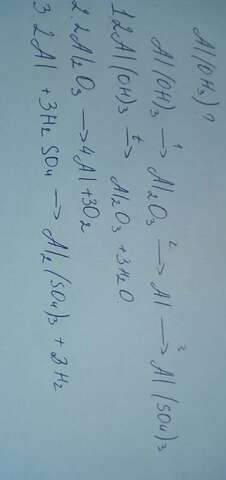 Al(OH3)?
Al(OH)3 →1 Al2O3 →2 Al →3 Al(SO4)3
1.2Al(OH)3 →t Al2O3 + 3H2O.
2. 2Al2O3 → 4Al + 3O2
3. 2Al + 3H2SO4 → Al2(SO4)3 + 3H2